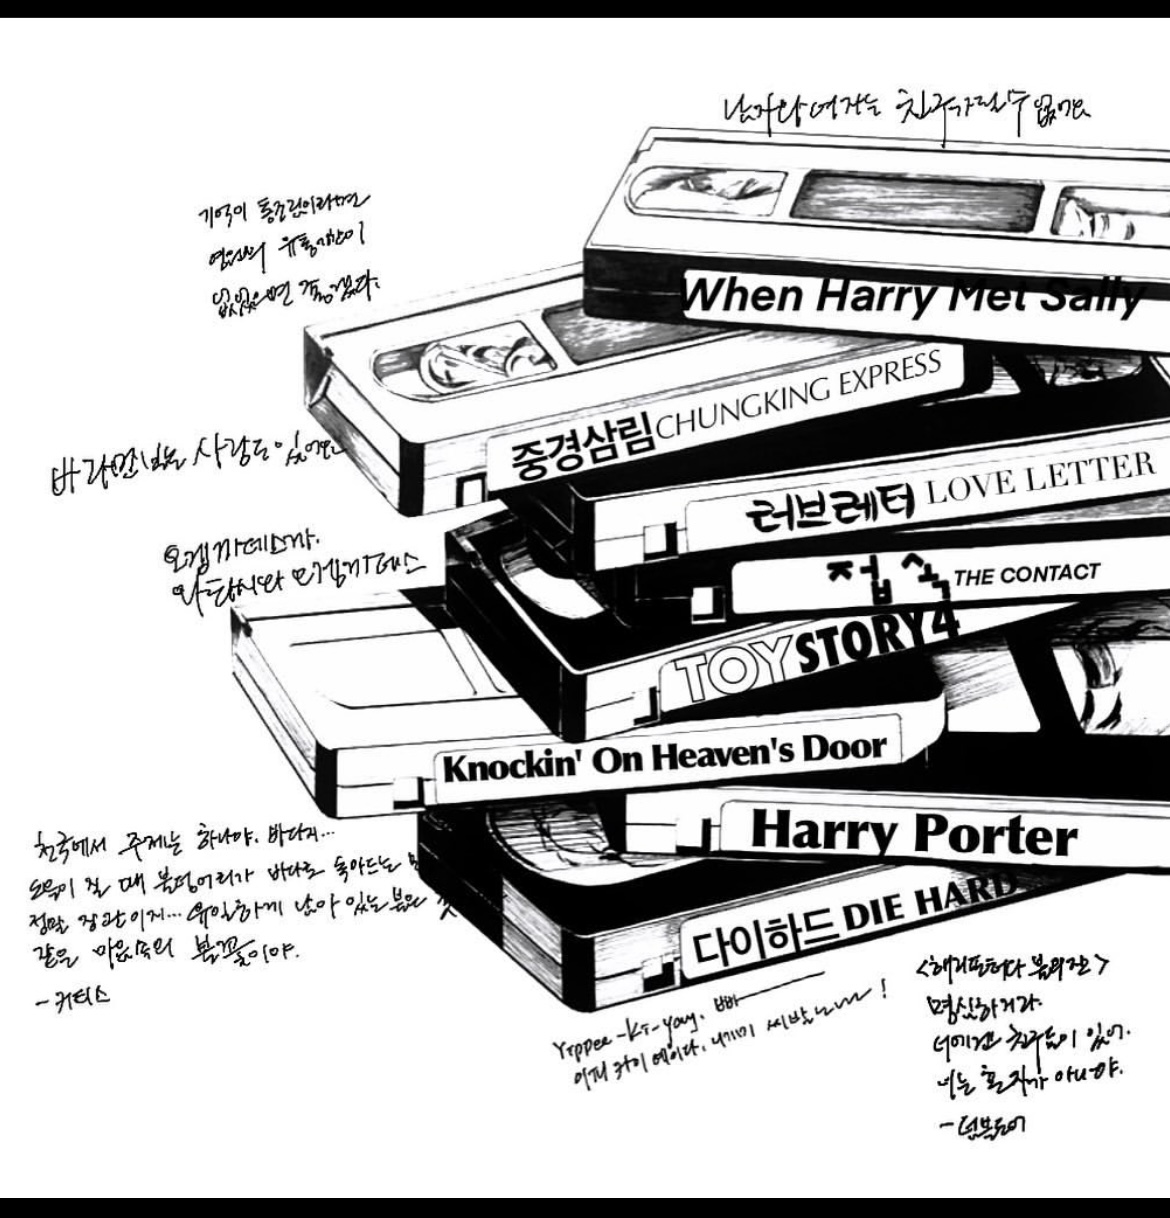 남자와 여자는 친구가 될 수 없어요
기억이 통조림이라면
영원히 유통기한이
없었으면 좋겠다.
When Harry Met Sally
중경삼림 CHUNGKING EXPRESS
사랑도 있어요
러브레터 LOVE LETTER
오겡끼데스까.
와타시와 오겡끼데스
접속 THE CONTACT
TOY STORY 4
Knockin' On Heaven's Door
Harry Porter
천국에서 주제는 하나야. 바다지...
노을이 질 때 불덩어리가 바다로 녹아드는
정말 장관이지... 유일하게 남아 있는 불은
같은 마음속의 불꽃이야.
- 커티스
다이하드 DIE HARD
Yippee-Ki-yay. 빠
이피 카이 예이다. 니기미 씨발
<해리포터와 불의잔>
명심하거라.
너에겐 친구들이 있어.
너는 혼자가 아니야.
- 덤블도어